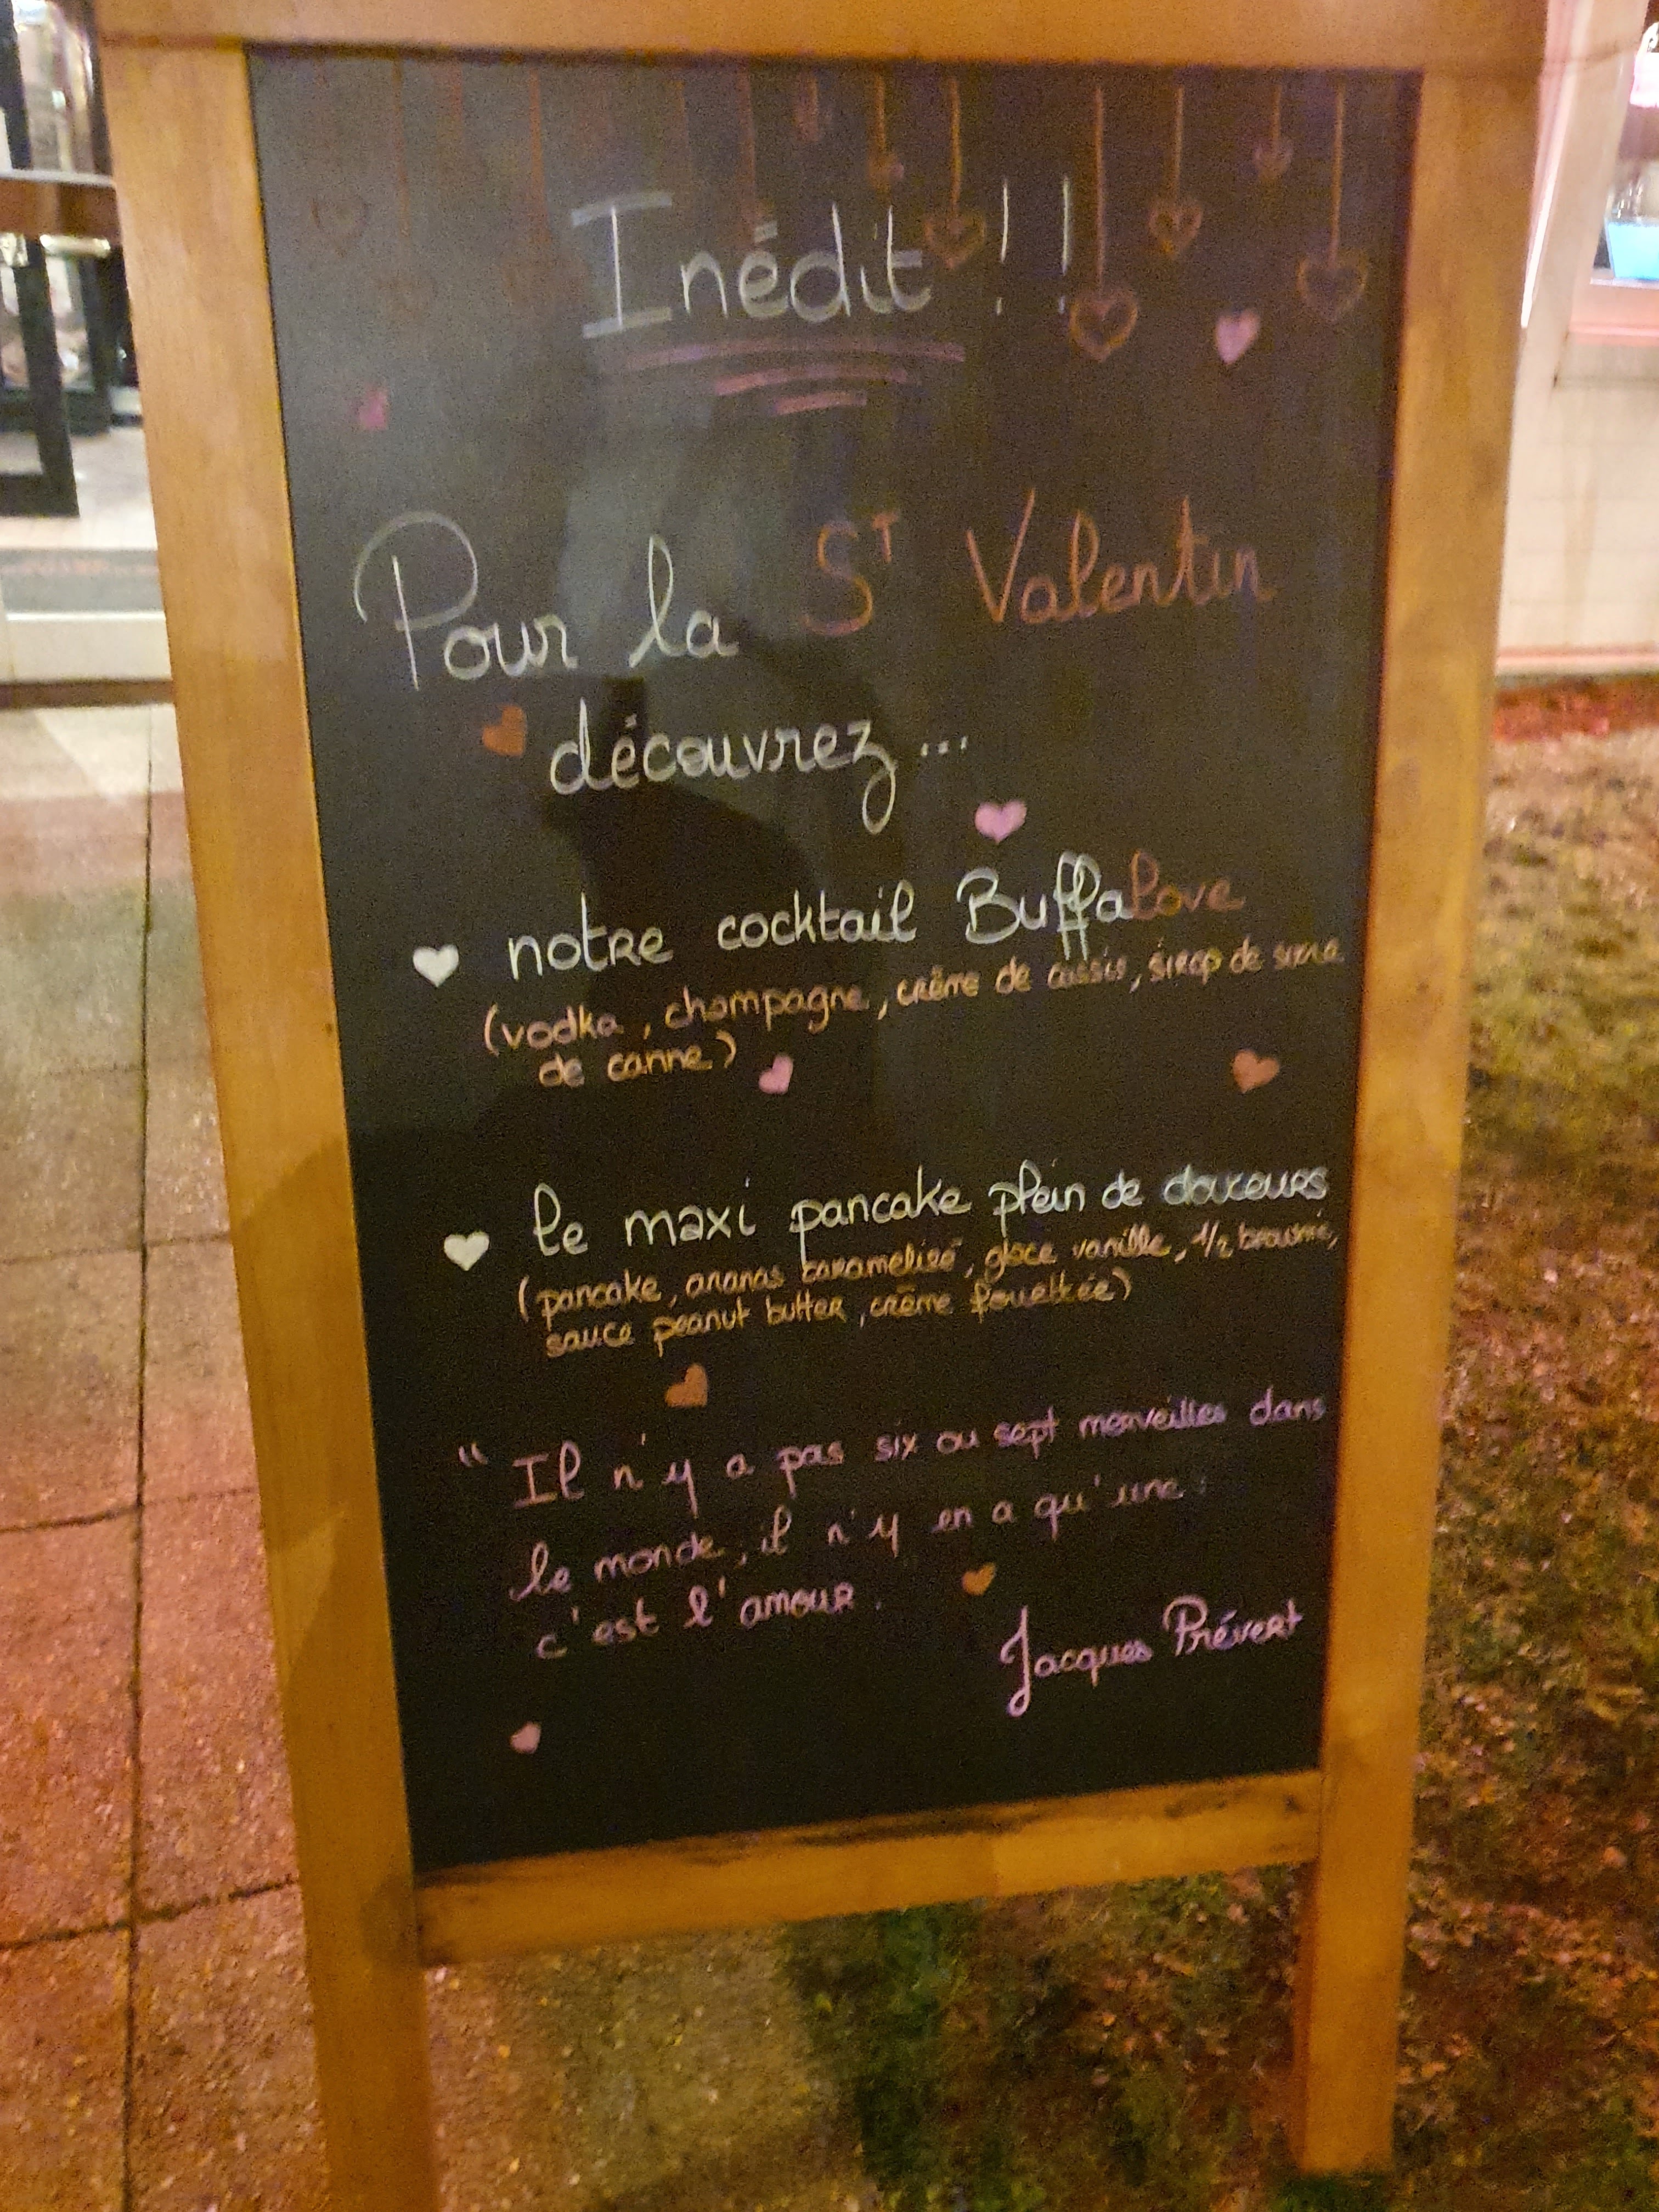 Inédit !!
Pour la St Valentin
découvrez ...
notre cocktail Buffalove
(vodka, champagne, crème de cassis, sirop de sucre
de canne)
le maxi pancake plein de douceurs
(pancake, ananas caramélisé, glace vanille, 1/2 brownie,
sauce peanut butter, crème fouettée)
" Il n'y a pas six ou sept merveilles dans
le monde, il n'y en a qu'une :
c'est l'amour.
Jacques Prévert